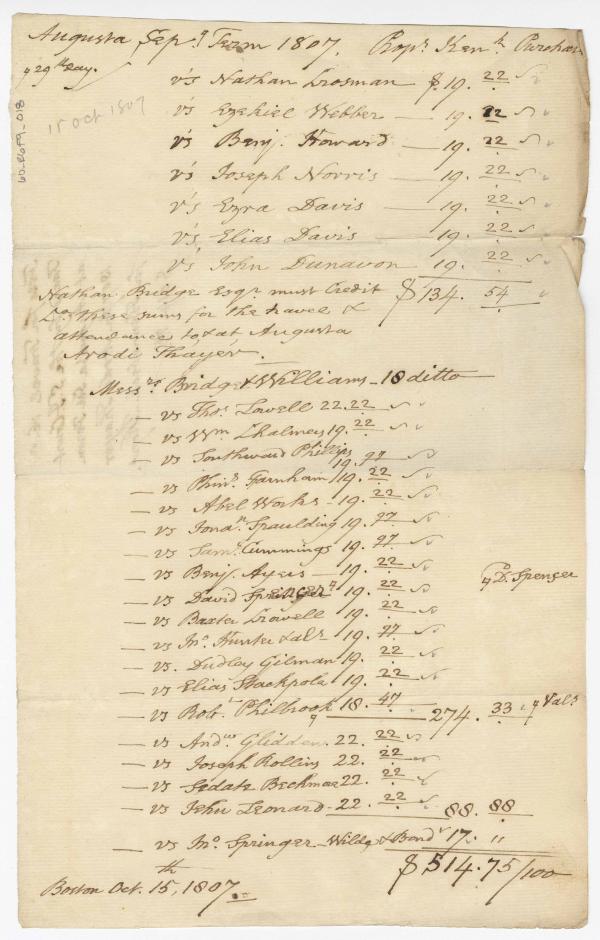 Augusta Sepr Term 1807. Propr Kenk Purchas
29th Day.
60-2659-018
15 Oct 1807
v's Nathan Crosman $19. 22
v's Ezekiel Webber — 19. 22
v's Benj. Howard — 19. 22
v's Joseph Norris — 19. 22
v's Ezra Davis — 19. 22
v's Elias Davis — 19. 22
v's John Dunavon 19. 22
$134. 54
Nathan Bridge Esqr must Credit
these sums for the travel &
attendance to & at Augusta
Arodi Thayer.
Messrs Bridge & Williams - 18 ditto
— vs Thos Lowell 22.22
— vs Wm Chalmers 19. 22
— vs Southward Phillips
19. 77
— vs Phins Farnham 19. 22
— vs Abel Works - 19. 22
— vs Jonan Spaulding 19. 77
— vs Saml Cummings 19. 77
— vs Benj. Ayers — 19. 22
— vs David Springer 19. 22 D. Spenser
— vs Baxter Crowell 19. 22
— vs Jno Hunter & alr 19. 77
— vs. Dudley Gilman 19. 22
— vs Elias Stackpole 19. 22
— vs Robt Philbrook 18. 47 274. 33
— vs Andws Glidden 22. 22
— vs Joseph Rollins 22. 22
— vs Sedate 22. 22
— vs John Leonard 22. 22 88. 88
— vs Jno Springer - & Bond 17. "
$514.75/100
Boston Oct. 15th, 1807.